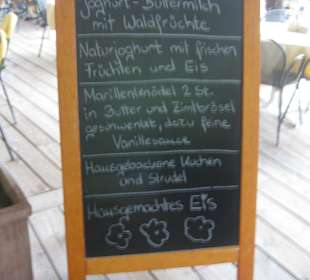 Joghurt-Buttermilch
mit Waldfrüchte
Naturjoghurt mit frischen
Früchten und Eis
Marillenknödel 2 St.
in Butter und Zimtbrösel
geschwenkt, dazu feine
Vanillesauce
Hausgebackene Kuchen
und Strudel
Hausgemachtes Eis